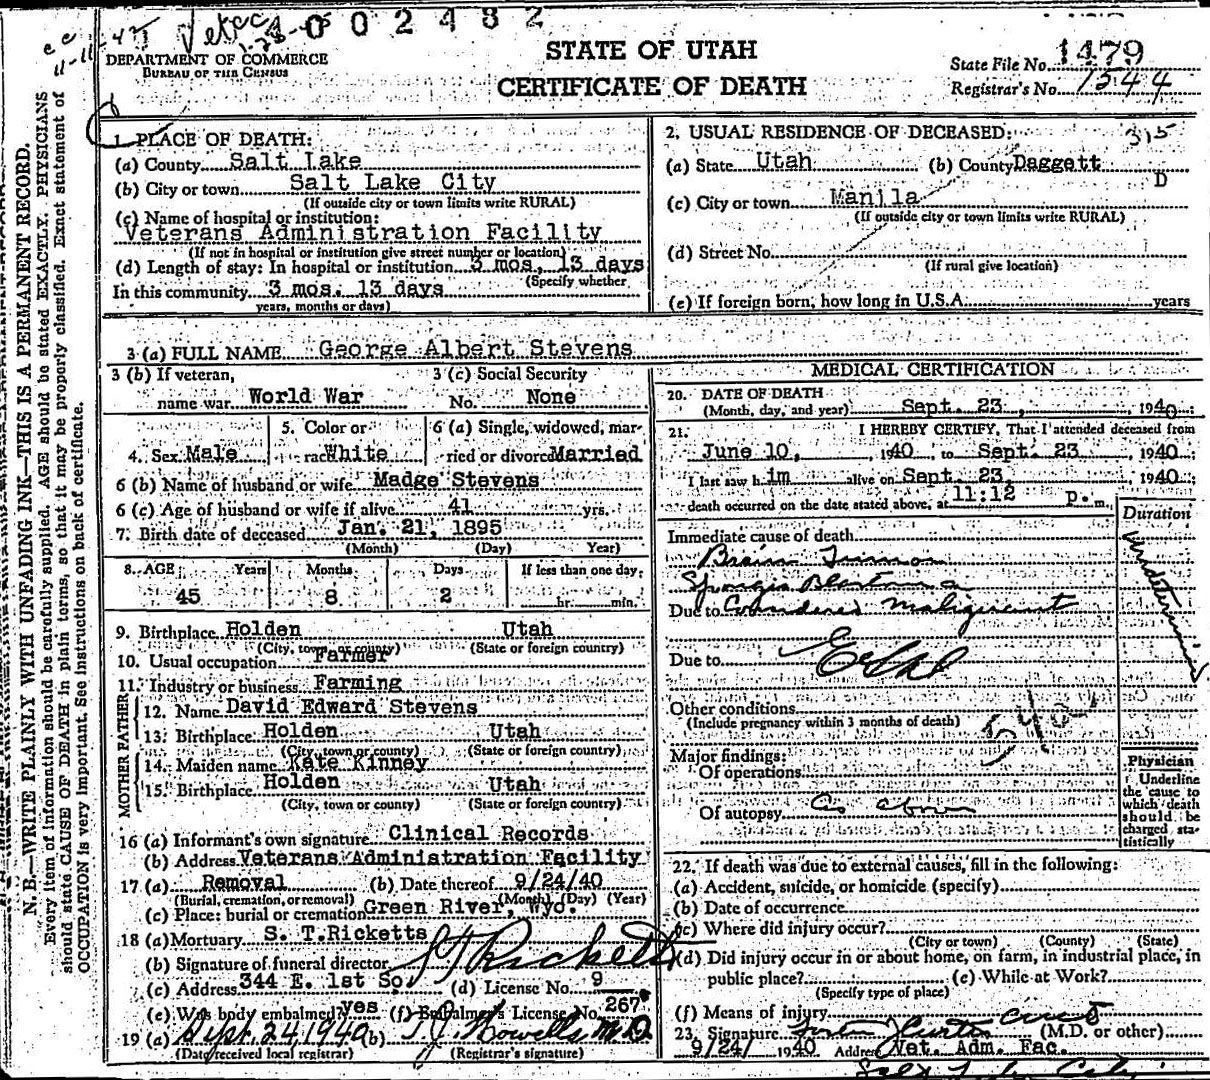 002482
DEPARTMENT OF COMMERCE
BUREAU OF THE CENSUS
STATE OF UTAH
CERTIFICATE OF DEATH
State File No. 1479
Registrar's No. 1344
N. B.—WRITE PLAINLY WITH UNFADING INK—THIS IS A PERMANENT RECORD.
Every item of information should be carefully supplied. AGE should be stated EXACTLY. PHYSICIANS
should state CAUSE OF DEATH in plain terms, so that it may be properly classified. Exact statement of
OCCUPATION is very important. See instructions on back of certificate.
1. PLACE OF DEATH:
(a) County Salt Lake
(b) City or town Salt Lake City
(If outside city or town limits write RURAL)
(c) Name of hospital or institution:
Veterans Administration Facility
(If not in hospital or institution give street number or location)
(d) Length of stay: In hospital or institution 3 mos. 13 days
(Specify whether
In this community 3 mos. 13 days
years, months or days)
2. USUAL RESIDENCE OF DECEASED: 315
(a) State Utah (b) County Daggett
D
(c) City or town Manila
(If outside city or town limits write RURAL)
(d) Street No.
(If rural give location)
(e) If foreign born, how long in U.S.A. years
3 (a) FULL NAME George Albert Stevens
3 (b) If veteran, 3 (c) Social Security
name war World War No. None
4. Sex Male 5. Color or race White 6 (a) Single, widowed, married or divorced Married
6 (b) Name of husband or wife Madge Stevens
6 (c) Age of husband or wife if alive 41 yrs.
7. Birth date of deceased Jan. 21, 1895
(Month) (Day) Year)
8. AGE Years Months Days If less than one day,
45 8 2 hr. min.
9. Birthplace Holden Utah
(City, town or county) (State or foreign country)
10. Usual occupation Farmer
11. Industry or business Farming
FATHER
12. Name David Edward Stevens
13. Birthplace Holden Utah
(City, town or county) (State or foreign country)
MOTHER
14. Maiden name Kate Kinney
15. Birthplace Holden Utah
(City, town or county) (State or foreign country)
16 (a) Informant's own signature Clinical Records
(b) Address Veterans Administration Facility
17 (a) Removal (b) Date thereof 9/24/40
(Burial, cremation, or removal) (Month) (Day) (Year)
(c) Place: burial or cremation Green River, Wyo.
18 (a) Mortuary S. T. Ricketts
(b) Signature of funeral director S T Ricketts
(c) Address 344 E. 1st So. (d) License No. 9
(e) Was body embalmed? yes (f) Embalmer's License No. 267
19 (a) Sept. 24, 1940 (b) T. J. Howells M.D.
(Date received local registrar) (Registrar's signature)
MEDICAL CERTIFICATION
20. DATE OF DEATH
(Month, day, and year) Sept. 23, 1940
21. I HEREBY CERTIFY, That I attended deceased from
June 10, 1940, to Sept. 23, 1940;
I last saw h im alive on Sept. 23, 1940;
death occurred on the date stated above, at 11:12 p. m.
Duration
Immediate cause of death
Brain Tumor
Spongio Blastoma
Due to Considered malignant
undetermined
Due to
Other conditions
(Include pregnancy within 3 months of death)
Major findings:
Of operations
Of autopsy as above
Physician
Underline
the cause to
which death
should be
charged sta-
tistically
22. If death was due to external causes, fill in the following:
(a) Accident, suicide, or homicide (specify)
(b) Date of occurrence
(c) Where did injury occur?
(City or town) (County) (State)
(d) Did injury occur in or about home, on farm, in industrial place, in
public place? (e) While at Work?
(Specify type of place)
(f) Means of injury
23. Signature Curtis (M.D. or other)
9/24/ 1940 Address Vet. Adm. Fac.
Salt Lake City